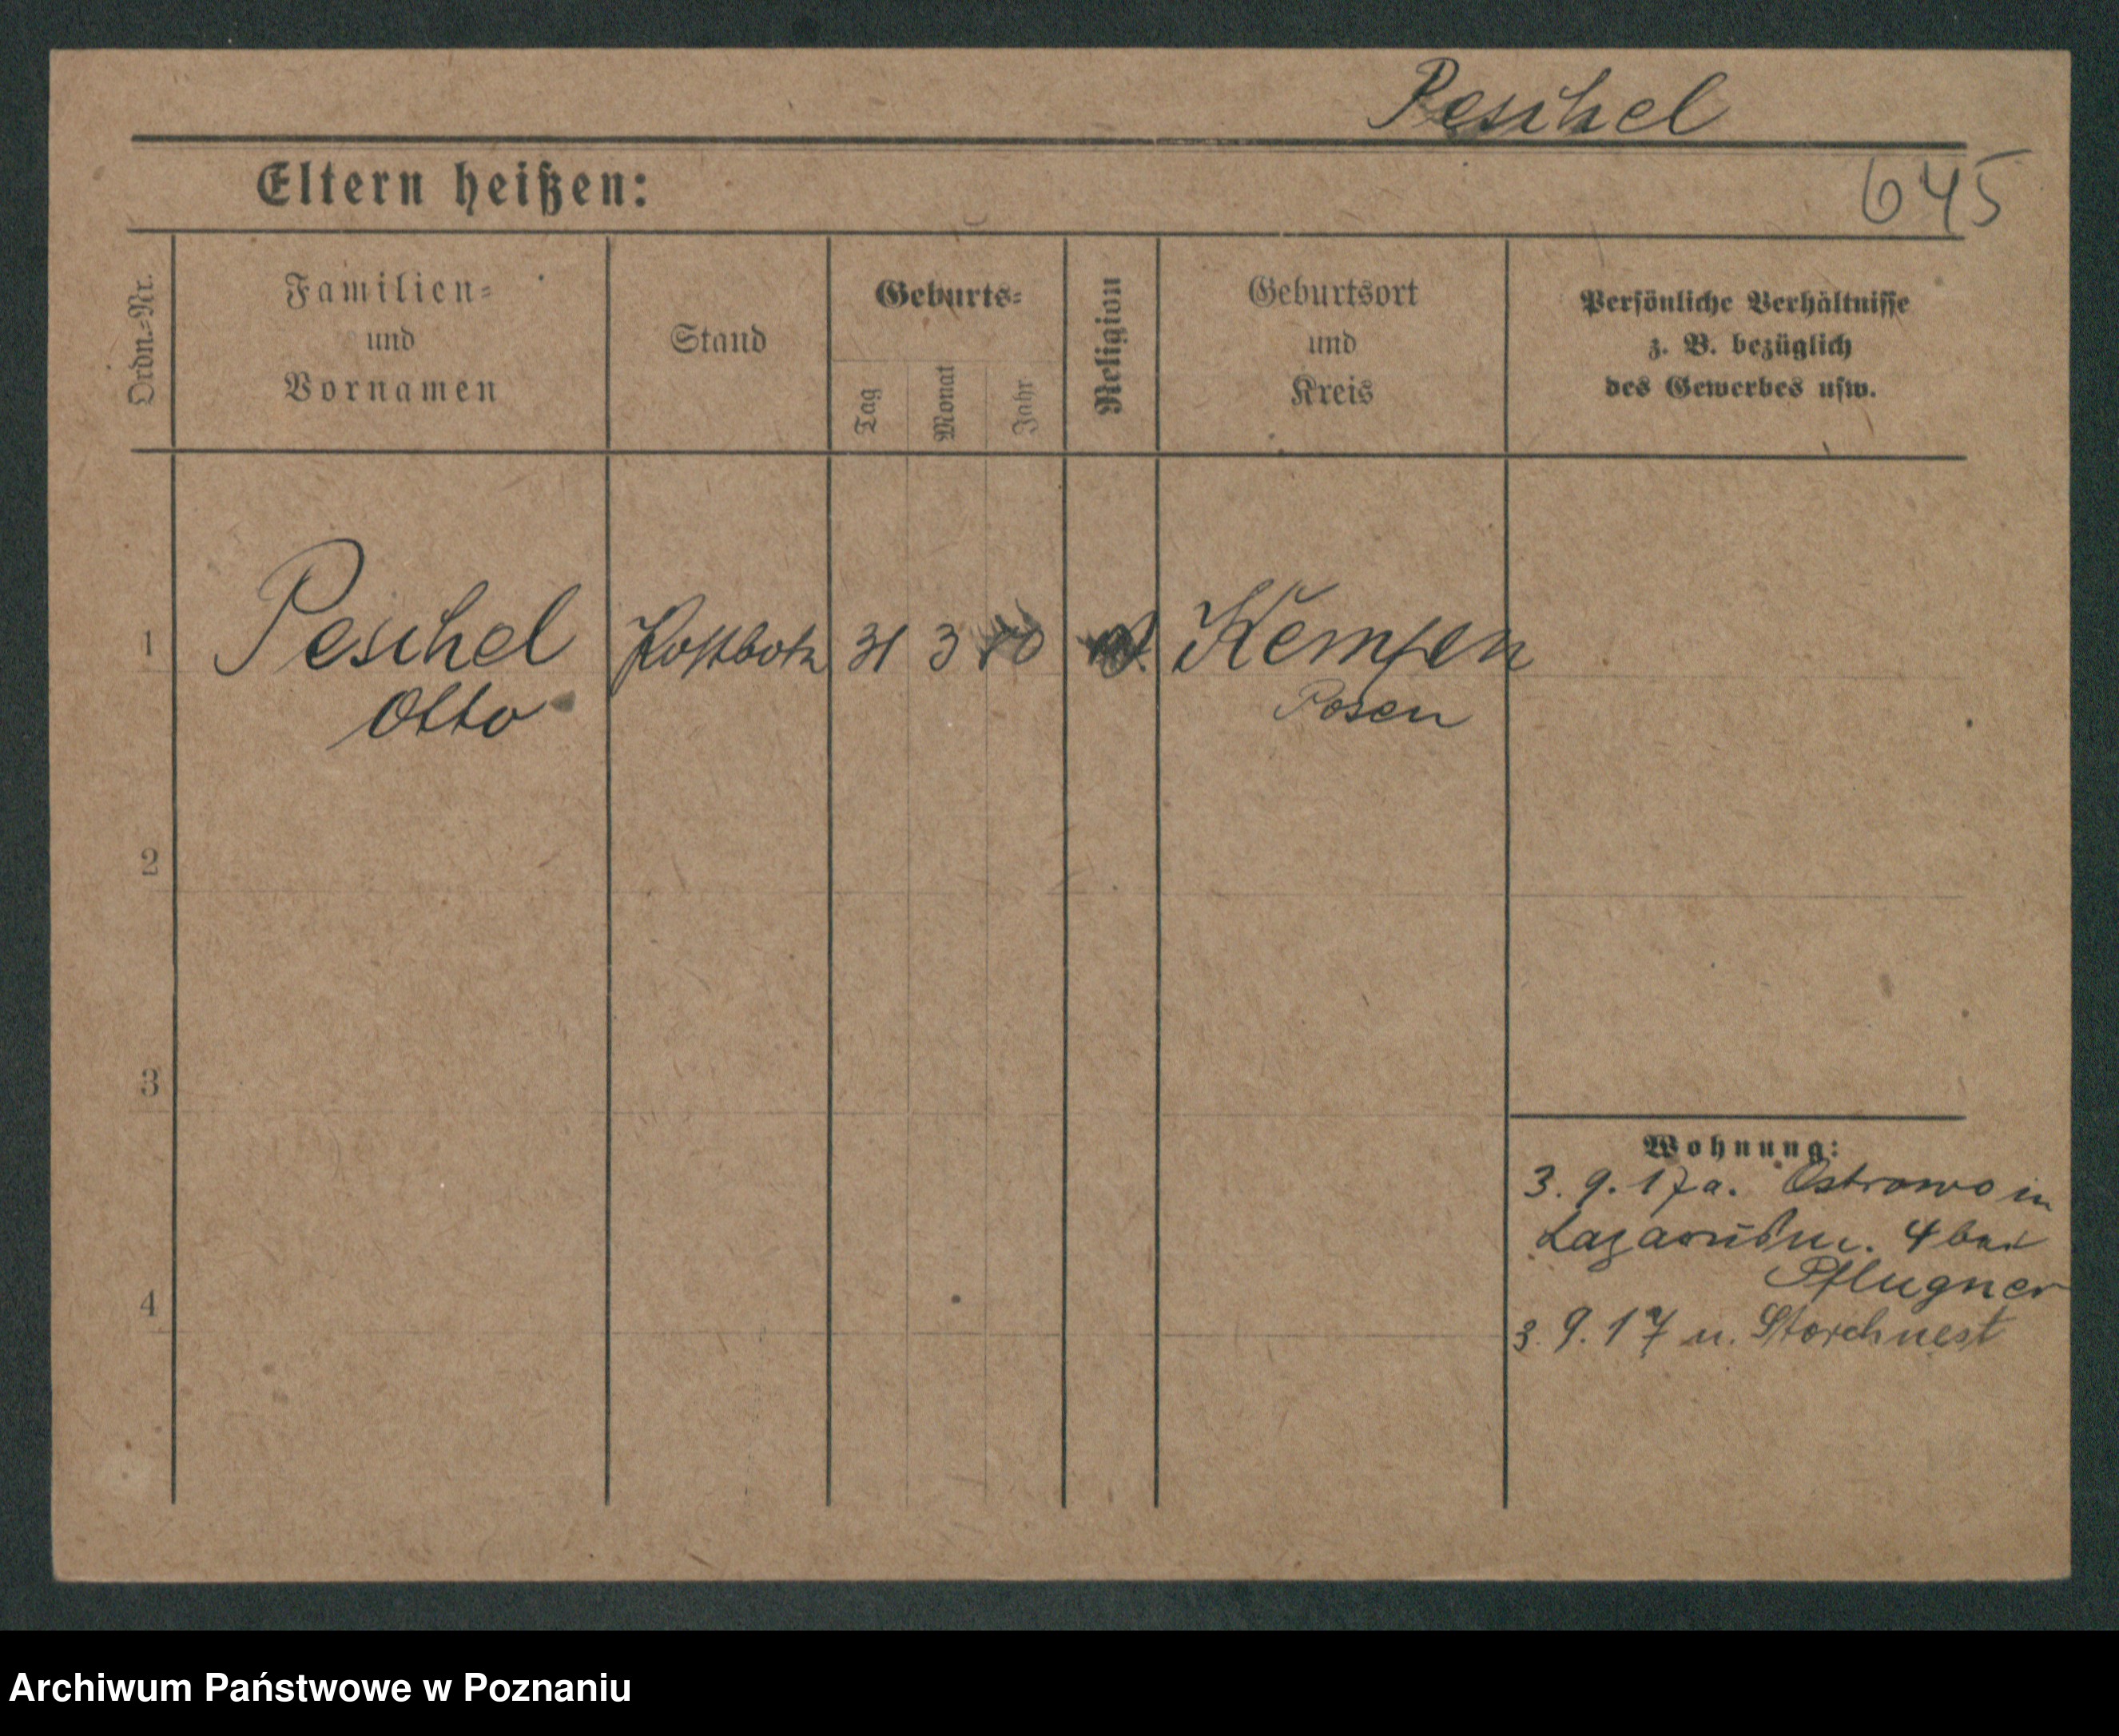 Peschel
Eltern heißen:
645
Ordn.=Nr.
Familien=
und
Vornamen
Stand
Geburts=
Tag
Monat
Jahr
Religion
Geburtsort
und
Kreis
Persönliche Verhältnisse
z. B. bezüglich
des Gewerbes usw.
1
Peschel
Otto
Postbote
31
3
80
Kempen
Posen
2
3
4
Wohnung:
3. 9. 17 a. Ostrowo in
4 bei
Pflugner
3. 9. 17 n. Storchnest
Archiwum Państwowe w Poznaniu